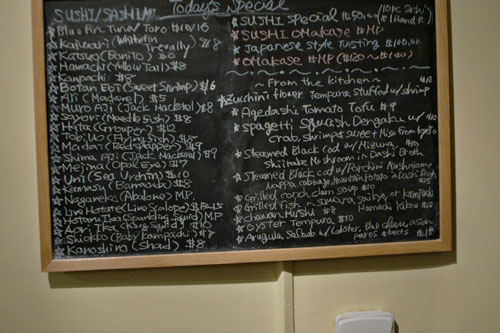 Today's Special
SUSHI/SASHIMI
Bluefin Tuna/Toro $10/16
Kaiwari (Whitefin Trevally) $8
Katsuo (Bonito) $8
Hamachi (Yellow Tail) $8
Kanpachi $8
Botan Ebi (Sweet Shrimp) $6
Aji (Mackerel) $5
Muro Aji (Jack Mackerel) $8
Sayori (Needle Fish) $8
Kita (Grouper) $2
Tobiuo (Flying Fish) $8
Madai (Red Snapper) $9
Shima Aji (Jack Mackerel) $9
Mejina (Opal Eye) $7
Uni (Sea Urchin) $10
Kamasu (Barracuda) $8
Nagareko (Abalone) MP
Live Hotate (Live Scallops)
Hotaru Ika (Spanking Squid) MP
Aori Ika (King Squid) $10
Shiokko (Baby Kampachi) $7
Konoshiro (Shad) $8
SUSHI Special $50.00 (10pc Sushi & 1 Hand R.)
SUSHI OMAKASE $MP
Japanese Style Tasting $100.00
OMAKASE $MP ($120~$180)
~From the kitchen~
Zucchini flower Tempura stuffed w/ shrimp
Agedashi Tomato Tofu $9
Spagetti Squash Dengaku w/
crab, shrimp & sweet Miso from Kyoto
Steamed Black cod w/ Mizuna,
Shiitake Mushroom in Dashi Broth
Steamed Black cod w/ Porchini Mushroom
Nappa cabbage, Mountain Potato
Grilled conch clam soup $10
Grilled fish ~ Sawara, Saikyo, or Kamatoshi
Hamachi Kama $10
Chawan Mushi $8
Oyster Tempura $10
Arugula Salad w/ Lobster,
pares & beets